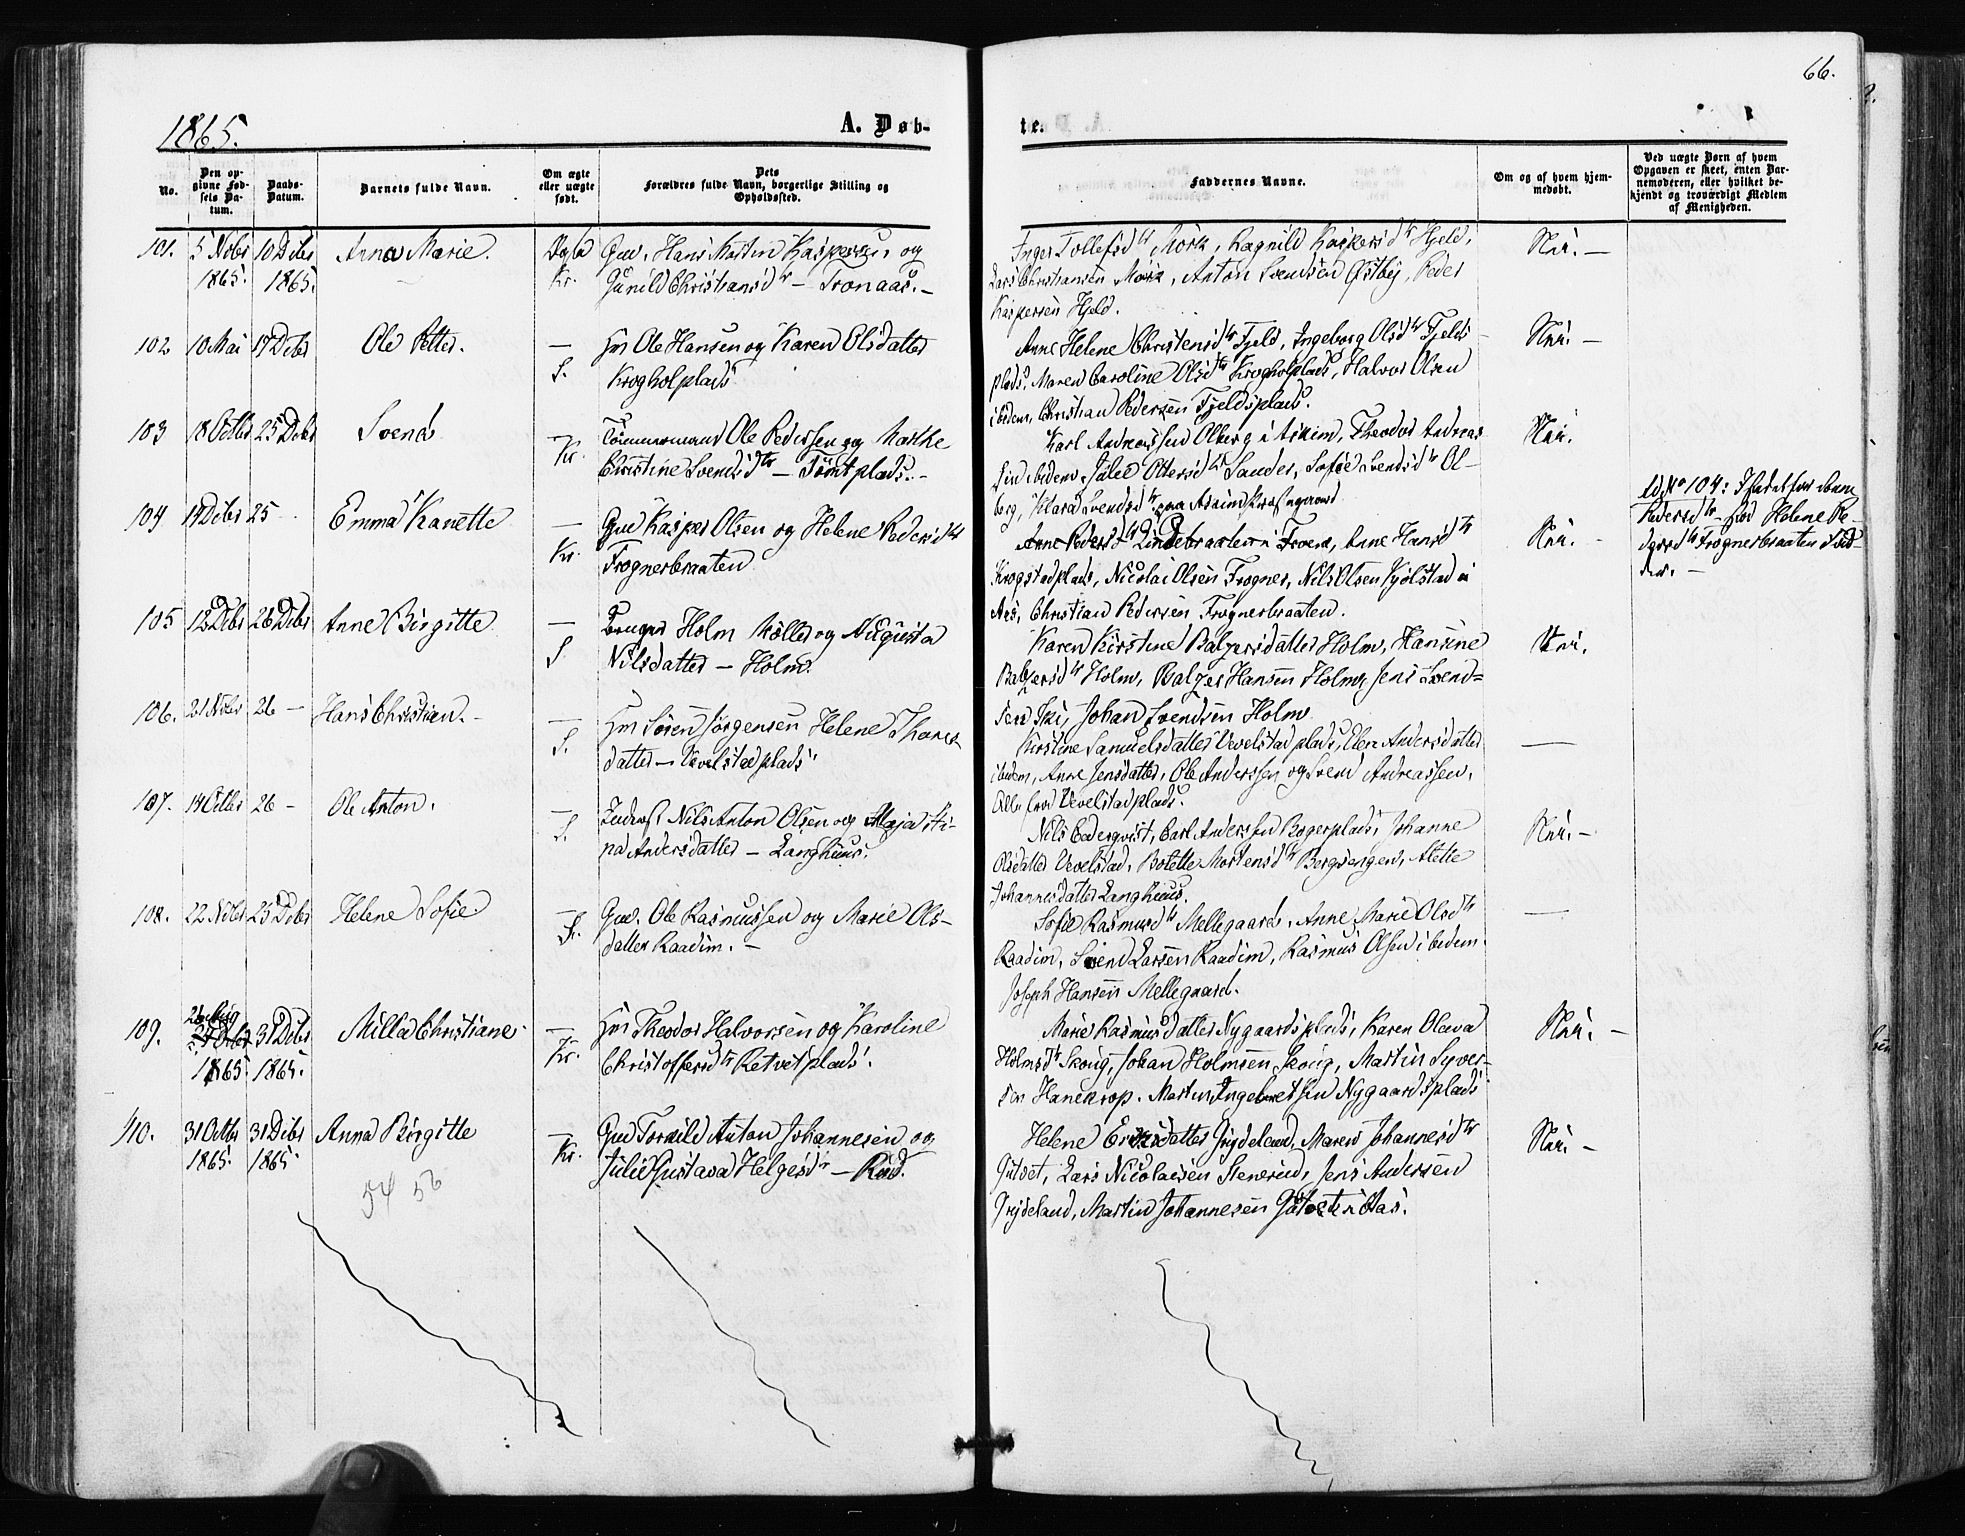 66.
1865.
A. Døb-
te.
No.
Den op-
givne Fød-
sels Da-
tum.
Daabs-
Datum.
Barnets fulde Navn.
Om ægte
eller uægte
født.
Dets
Forældres fulde Navn, borgerlige Stilling og
Opholdssted.
Faddernes Navne.
Om og af hvem hjem-
medøbt.
Ved uægte Børn af hvem
Opgaven er skeet, enten Bar-
nemoderen, eller hvilket be-
kjendt og troværdigt Medlem
af Menigheden.
101. 5 Nobr 10 Debr Anna Marie. Ægte Gm. Hans Martin Kaspersen og
1865. 1865. Kr. Gunild Christiansdtr – Tronaas. –
Inger Tollefsdtr Mörk, Ragnild Kaspersdtr Hjeld,
Lars Christiansen Mörk, Anton Svendsen Østby, Peder
Kaspersen Hjeld.
Nei. –
102 10 Mai 17 Debr Ole Petter. – Hm Ole Hansen og Karen Olsdatter
S. Krogholplads
Anne Helene Christensdtr Fjeld, Ingeborg Olsdtr Fjelds
plads, Maren Caroline Olsdtr Krogholplads, Halvor Olsen
ibidem, Christian Pedersen Fjeldsplads.
Nei. –
103 18 Octbr 25 Debr Svend – Tömmermand Ole Pedersen og Marthe
Kr. Christine Svendsdtr – Tömtplads. –
Karl Andreassen Olberg i Askim, Theodor Andreas
sen ibidem, Julie Ottersdtr Sander, Sofie Svendsdtr Ol-
berg, Klara Svendsdtr
Nei.
104 14 Debr 25 Emma Kanette – Gm Kasper Olsen og Helene Pedersdtr
Kr. Frognerbraaten
Anne Pedersdtr Lindebraaten i Kroer, Anne Hansdtr
Krogstadplads, Nicolai Olsen Frogner, Nils Olsen Kjölstad i
Aas, Christian Pedersen Frognerbraaten.
Nei. –
Ad No 104: Istedetfor Anne
Pedersdtr – staar Helene Pe-
dersdtr Frognerbraaten
105 12 Debr 26 Debr Anne Birgitte – Bruger Holm Möller og Augusta
S. Nilsdatter – Holm.
Karen Kirstine Balzersdatter Holm, Hansine
Balzersdtr Holm, Balzer Hansen Holm, Jens Svend-
sen Ski, Johan Svendsen Holm
Nei.
106. 21 Nobr 26 – Hans Christian. – – Hm Sören Jörgensen Helene Thores
S. datter – Vevelstadplads
Kirstine Samuelsdatter Vevelstadplads, Elen Andersdatter
ibidem, Anne Jensdatter, Ole Anderssen og Svend Andreassen,
Alle fra Vevelstadplads.
–
107. 14 Octbr 26 – Ole Anton. – Inderst Nils Anton Olsen og Maja Sti-
S. na Andersdatter – Langhuus.
Nils Cederqvist, Carl Anderssen Bögerplads, Johanne
Olsdatter Vevelstad, Botelle Mortensdtr Bergsengen, Alette
Johannesdatter Langhuus.
Nei. –
108. 22 Nobr 25 Debr Helene Sofie – Gm. Ole Rasmussen og Marie Ols-
S. datter Raadim. –
Sofie Rasmusdtr Mellegaard, Anne Marie Olsdtr
Raadim, Svend Larsen Raadim, Rasmus Olsen ibidem.
Joseph Hansen Mellegaard.
–
109. 26 Aug 31 Debr Milla Christiane – Hm Theodor Halvorsen og Karoline
1865. 1865. Kr. Christoffersdtr Retvetplads.
Marie Rasmusdatter Nygaardsplads, Karen Olava
Holmsdtr Skoug, Johan Holmsen Skoug, Martin Syver-
sen Hanekrop. Martin Ingebretsen Nygaardsplads
Nei. –
110. 31 Octbr 31 Debr Anna Birgitte – Gm Torkild Anton Johannesen og
1865. 1865. Kr. Julie Gustava Helgesdtr – Rud.
54 56
Helene Eriksdatter Grydeland, Maren Johannesdtr
Gutvet, Lars Nicolaisen Stenerud, Jens Andersen
Grydeland, Martin Johannesen Gutvet i Aas.
Nei. –